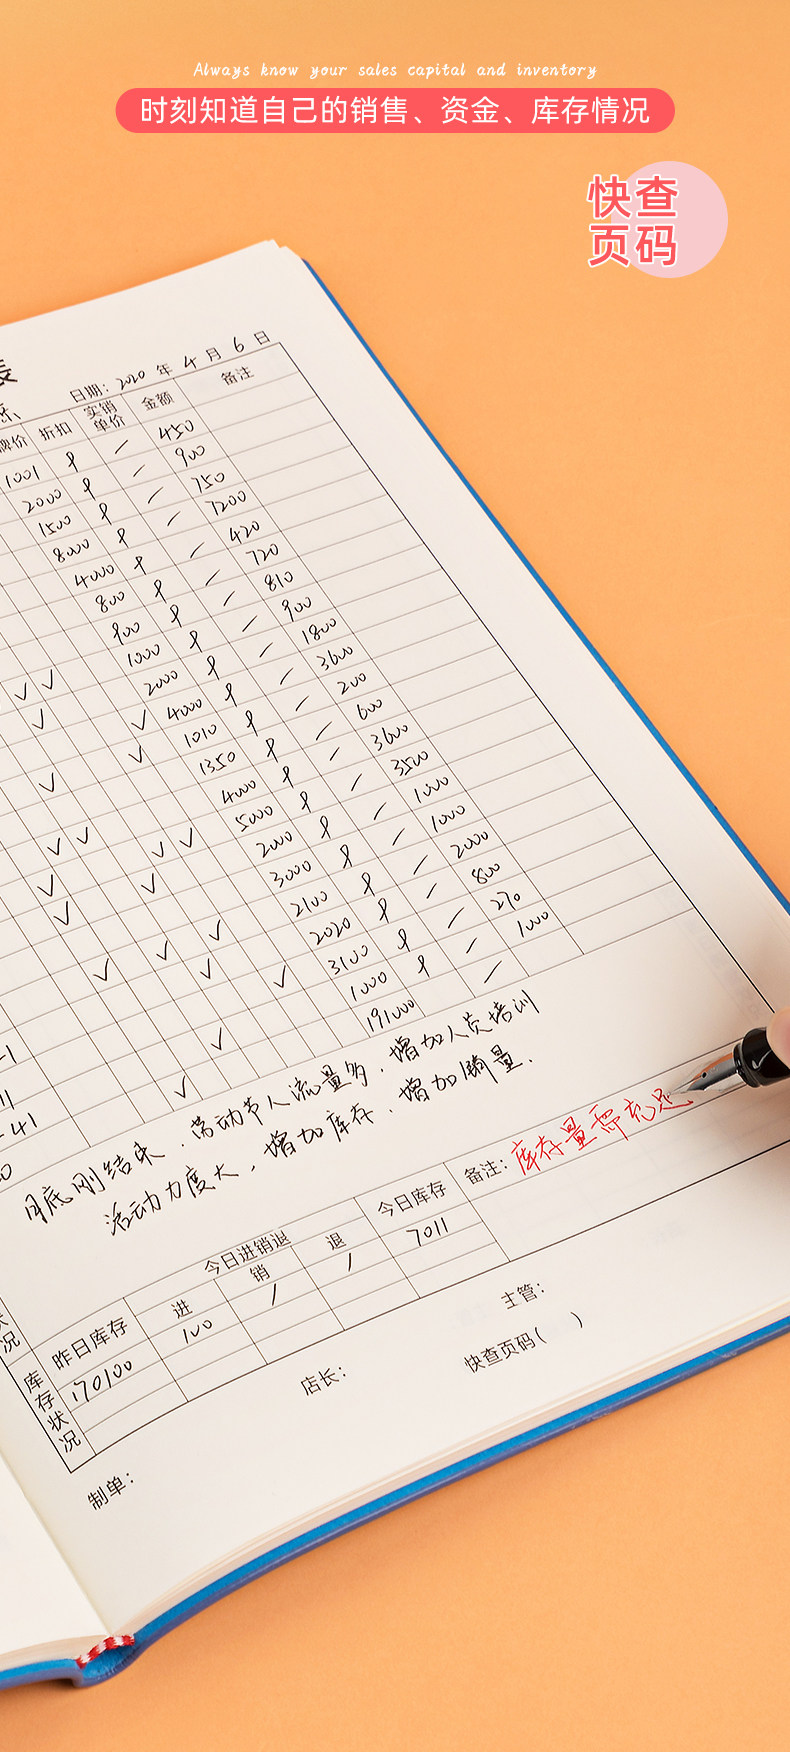 Always know your sales capital and inventory
时刻知道自己的销售、资金、库存情况
快查
页码
表
日期：2020 年 4 月 6 日
牌价 折扣 实销单价 金额 备注
1001 / 450
2000 / 900
1500 / 750
8000 / 7200
4000 / 420
800 / 720
900 / 810
1000 / 900
2000 / 1800
4000 / 3600
1010 / 200
1350 / 600
4000 / 3600
5000 / 3500
2000 / 1000
3000 / 1000
2100 / 2000
2020 / 800
3100 / 270
1000 / 1000
191000
-1
11
-41
月底刚结束，劳动节人流量多，增加人员培训
活动力度大，增加库存，增加销量．
备注：库存量需充足
状况
库存状况
昨日库存 今日进销退 今日库存
进 销 退
170100 100 / / 7011
制单： 店长： 主管：
快查页码( )